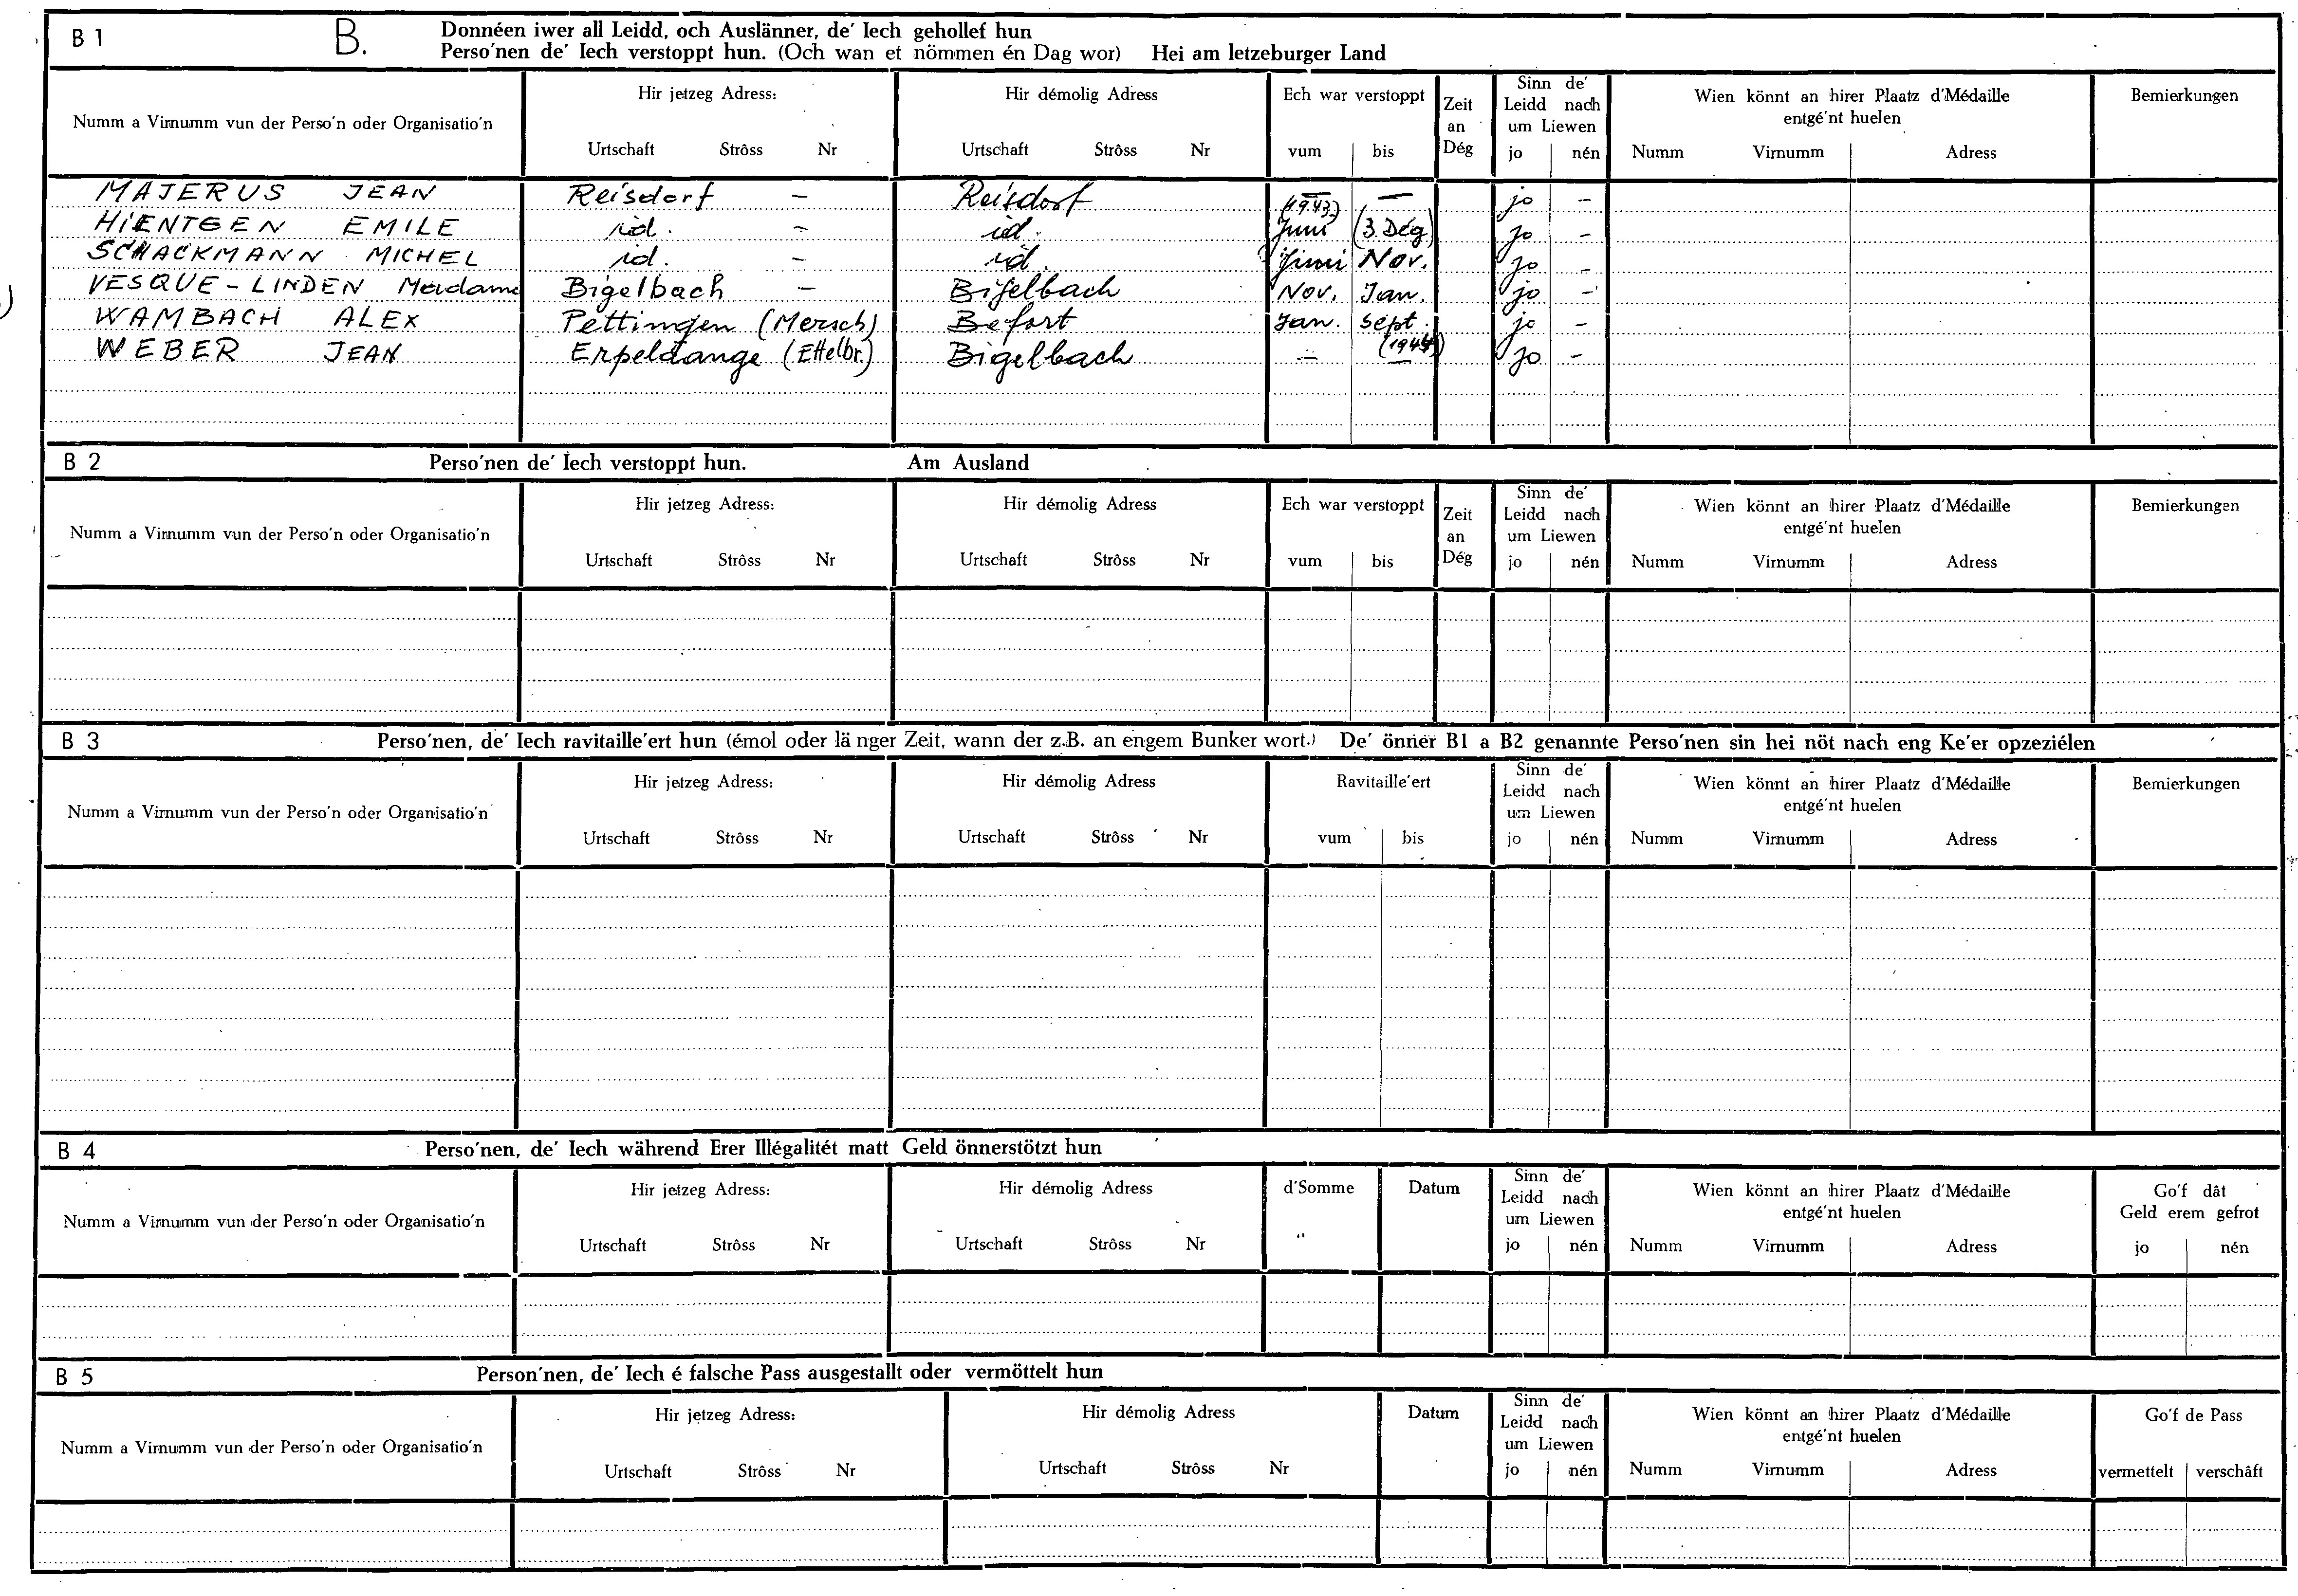 B 1 B. Donnéen iwer all Leidd, och Auslänner, de' Iech gehollef hun
Perso'nen de' Iech verstoppt hun. (Och wan et nömmen én Dag wor) Hei am letzeburger Land
Numm a Virnumm vun der Perso'n oder Organisatio'n
Hir jetzeg Adress:
Urtschaft Strôss Nr
Hir démolig Adress
Urtschaft Strôss Nr
Ech war verstoppt
vum bis
Zeit
an
Dég
Sinn de'
Leidd nach
um Liewen
jo nén
Wien könnt an hirer Plaatz d'Médaille
entgé'nt huelen
Numm Virnumm Adress
Bemierkungen
MAJERUS JEAN Reisdorf – Reisdorf – – jo –
HIENTGEN EMILE id. – id. (1943) Juni (3. Dég) jo –
SCHACKMANN MICHEL id. – id. Juni Nov. jo –
VESQUE-LINDEN Madame Bigelbach – Bigelbach Nov. Jan. jo –
WAMBACH ALEX Pettingen (Mersch) Befort Jan. Sept. (1944) jo –
WEBER JEAN Erpeldange (Ettelbr.) Bigelbach – – jo –
B 2 Perso'nen de' Iech verstoppt hun. Am Ausland
Numm a Virnumm vun der Perso'n oder Organisatio'n
Hir jetzeg Adress:
Urtschaft Strôss Nr
Hir démolig Adress
Urtschaft Strôss Nr
Ech war verstoppt
vum bis
Zeit
an
Dég
Sinn de'
Leidd nach
um Liewen
jo nén
Wien könnt an hirer Plaatz d'Médaille
entgé'nt huelen
Numm Virnumm Adress
Bemierkungen
B 3 Perso'nen, de' Iech ravitaille'ert hun (émol oder länger Zeit, wann der z.B. an engem Bunker wort.) De' önner B1 a B2 genannte Perso'nen sin hei nöt nach eng Ke'er opzeziélen
Numm a Virnumm vun der Perso'n oder Organisatio'n
Hir jetzeg Adress:
Urtschaft Strôss Nr
Hir démolig Adress
Urtschaft Strôss Nr
Ravitaille'ert
vum bis
Sinn de'
Leidd nach
um Liewen
jo nén
Wien könnt an hirer Plaatz d'Médaille
entgé'nt huelen
Numm Virnumm Adress
Bemierkungen
B 4 Perso'nen, de' Iech während Erer Illégalitét matt Geld önnerstötzt hun
Numm a Virnumm vun der Perso'n oder Organisatio'n
Hir jetzeg Adress:
Urtschaft Strôss Nr
Hir démolig Adress
Urtschaft Strôss Nr
d'Somme
Datum
Sinn de'
Leidd nach
um Liewen
jo nén
Wien könnt an hirer Plaatz d'Médaille
entgé'nt huelen
Numm Virnumm Adress
Go'f dât
Geld erem gefrot
jo nén
B 5 Person'nen, de' Iech é falsche Pass ausgestallt oder vermöttelt hun
Numm a Virnumm vun der Perso'n oder Organisatio'n
Hir jetzeg Adress:
Urtschaft Strôss Nr
Hir démolig Adress
Urtschaft Strôss Nr
Datum
Sinn de'
Leidd nach
um Liewen
jo nén
Wien könnt an hirer Plaatz d'Médaille
entgé'nt huelen
Numm Virnumm Adress
Go'f de Pass
vermettelt verschâft